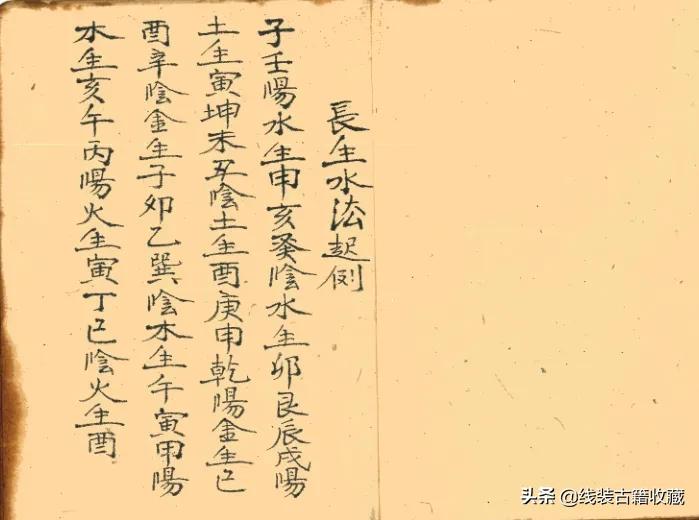 長生水法起例
子壬陽水生申亥癸陰水生卯艮辰戌陽
土生寅坤未丑陰土生酉庚申乾陽金生巳
酉辛陰金生子卯乙巽陰木生午寅甲陽
木生亥午丙陽火生寅丁巳陰火生酉
头条 @线装古籍收藏